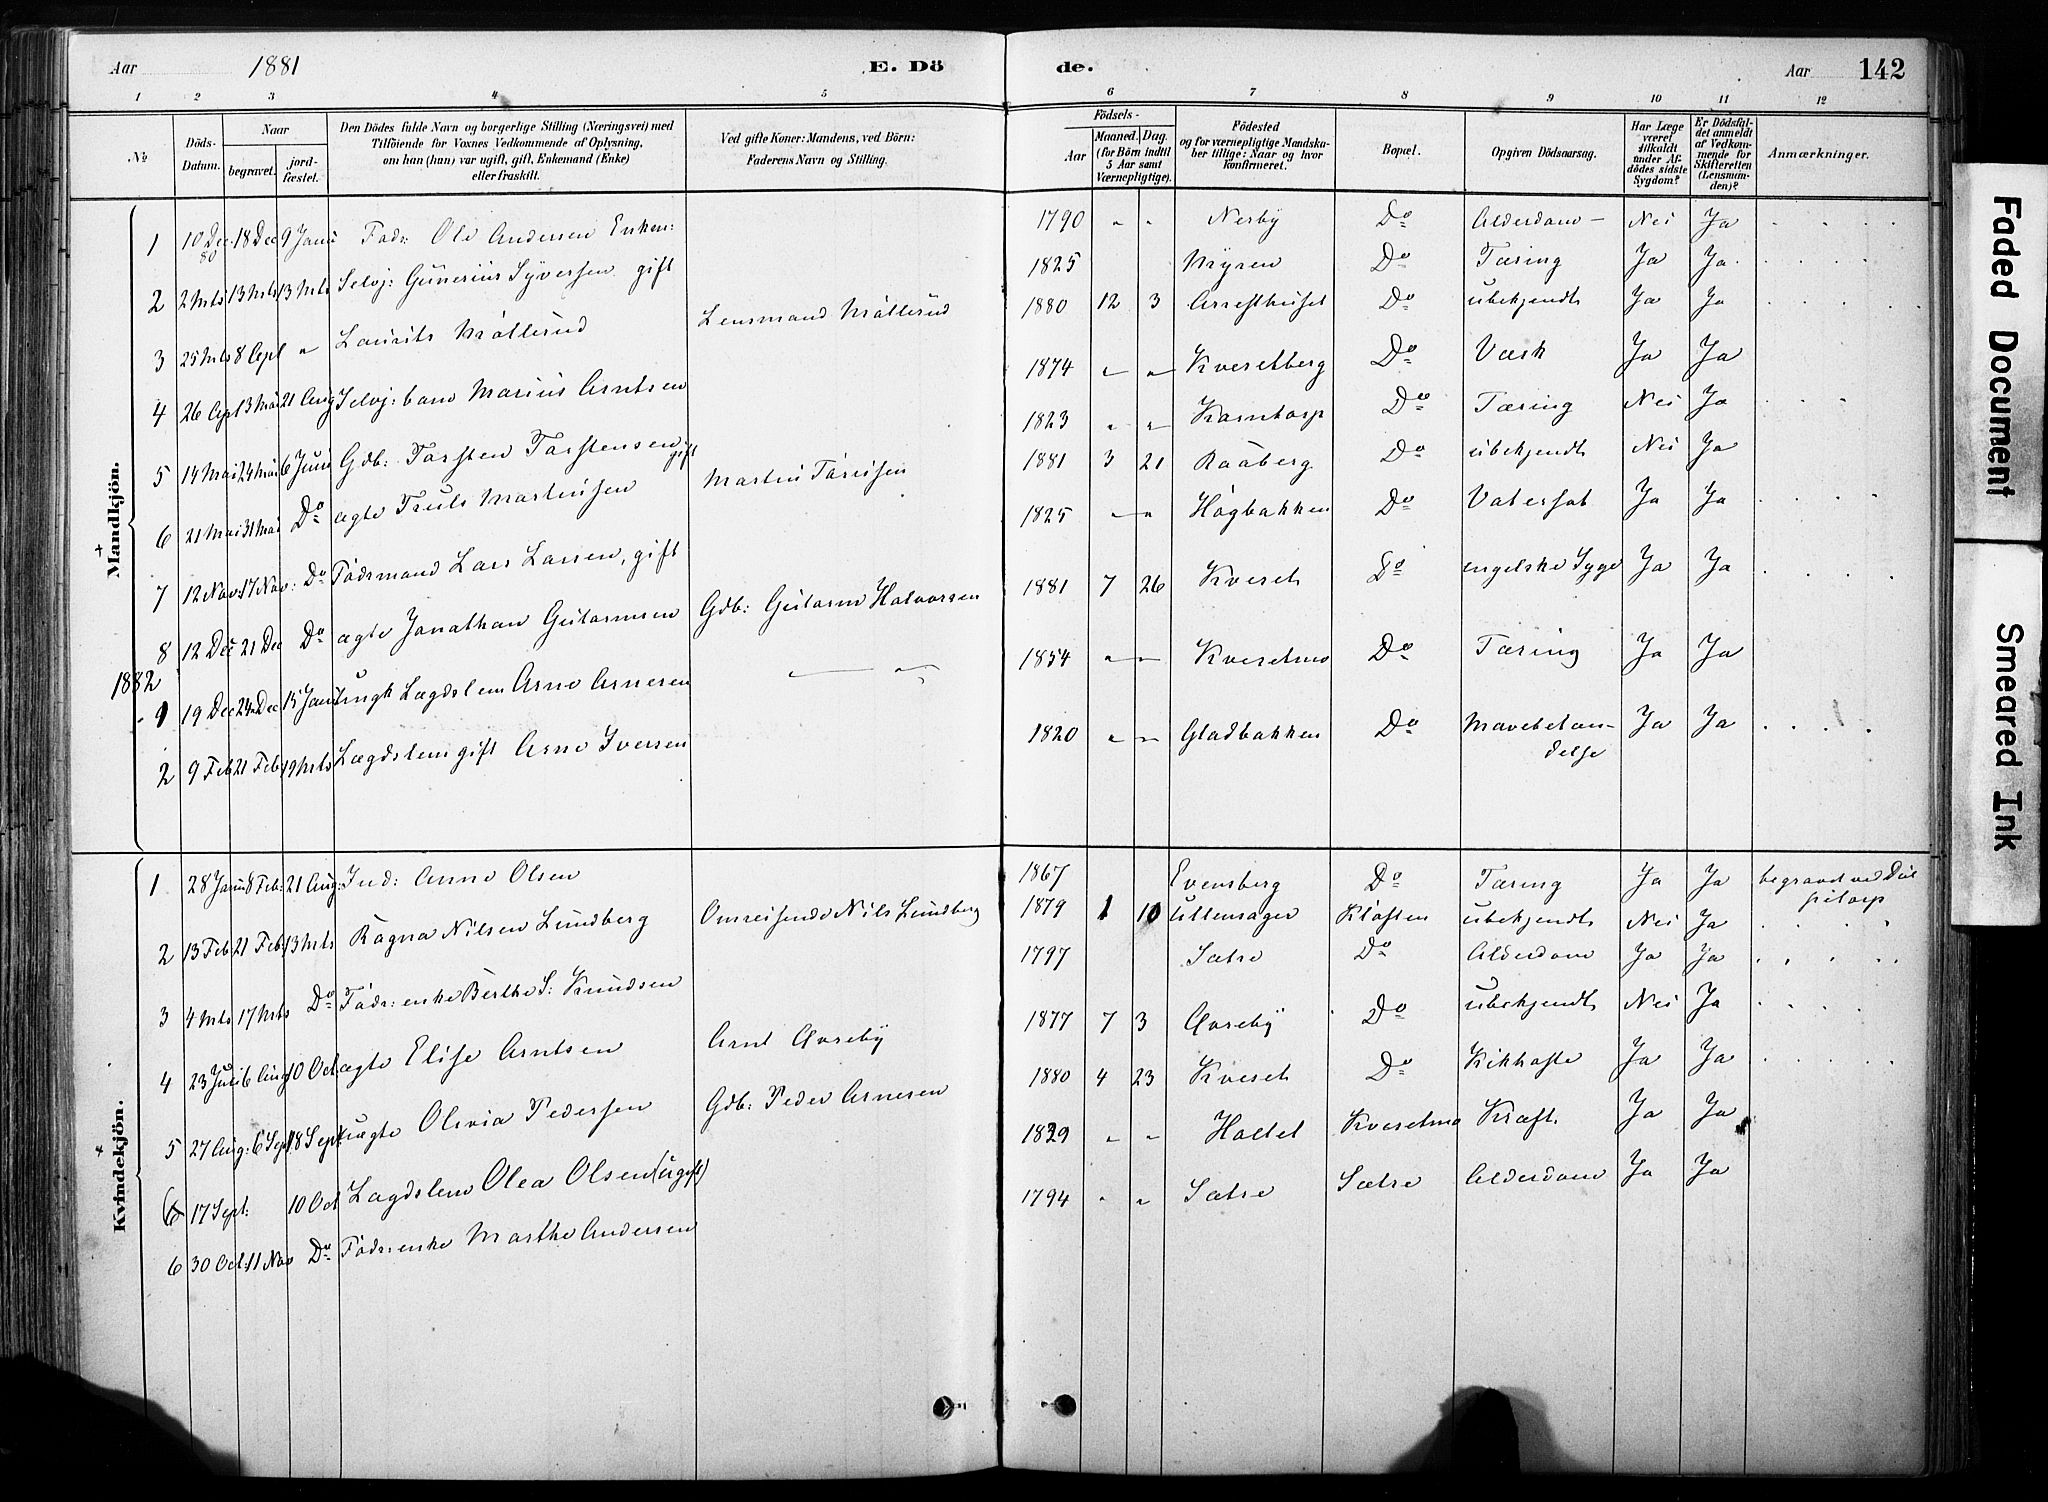 Aar 1881 E. Dö de. Aar 142
1 2 3 4 5 6 7 8 9 10 11 12
№
Döds-Datum.
Naar
begravet.
jord-fæstet.
Den Dödes fulde Navn og borgerlige Stilling (Næringsvei) med
Tilföiende for Voxnes Vedkommende af Oplysning,
om han (hun) var ugift, gift, Enkemand (Enke)
eller fraskilt.
Ved gifte Koner: Mandens, ved Börn:
Faderens Navn og Stilling.
Födsels-
Aar
Maaned. Dag.
(for Börn indtil
5 Aar samt
Værnepligtige).
Födested
og for værnepligtige Mandska-
ber tillige: Naar og hvor
konfirmeret.
Bopæl.
Opgiven Dödsaarsag.
Har Læge
været
tilkaldt
under Af-
dödes sidste
Sygdom?
Er Dödsfal-
det anmeldt
af Vedkom-
mende for
Skifteretten
(Lensman-
den)?
Anmærkninger.
Mandkjön.
1 10 Dec 80 18 Dec 9 Janu Ole Andersen Enkem: 1790 " " Nerby Do Alderdom Nei Ja
2 2 Mrts 13 Mrts 13 Mrts Selvj: Gunerius Syversen gift 1825 Myren Do Tæring Ja Ja
3 25 Mrts 8 Apl " Laurits Möllerud Lensmand Möllerud 1880 12 3 Arresthuset Do ubekjendt Ja Ja
4 26 Apl 13 Mai 21 Aug Selvj: barn Marius Arntsen 1874 " " Kvesetberg Do Værk Ja Ja
5 14 Mai 24 Mai 6 Juni Gdb: Torsten Torstensen gift 1823 " " Korntorp Do Tæring Nei Ja
6 21 Mai 31 Mai Do ægte Truls Martinsen Martin 1881 3 21 Raaberg Do ubekjendt Nei Ja
7 12 Nov 17 Nov: Do Födsmand Lars Larsen, gift 1825 " " Högbakken Do Vatersot Ja Ja
8 12 Dec 21 Dec Do ægte Jonathan Gulbrandsen Gdb: Halvorsen 1881 7 26 Kveset Do engelske Syge Ja Ja
1882
1 19 Dec 24 Dec 15 Janu Ungk Lægdslem Arne Arnesen " 1854 " " Kvesetmo Do Tæring Ja Ja
2 9 Feb 21 Feb 19 Mrts Lægdslem gift Arne Iversen 1820 " " Gladbakken Do Mavebetæn-
delse Ja Ja
Kvindekjön.
1 28 Janu 8 Feb: 21 Aug: Ind: Anne Olsen 1867 Evensberg Do Tæring Ja Ja begravet ved
2 13 Feb 21 Feb: 13 Mrts Ragna Nilsen Lundberg Omreisende Nils Lundberg 1879 1 10 Ullensager Kløften ubekjendt Nei Ja
3 4 Mrts 17 Mrts Do Föds: enke Berthe S. Knudsen 1797 Sætre Do Alderdom Ja Ja
4 23 Juli 6 Aug 10 Oct ægte Elise Arntsen Arnt Aurseby 1877 7 3 Aurseby Do ubekjendt Nei Ja
5 27 Aug: 6 Sept 18 Sept uægte Olivia Pedersen Gdb: Peder Arnesen 1880 4 23 Kveset Do Kikhoste Ja Ja
6 17 Sept: 10 Oct Lægdslem Olea Olsen (ugift) 1829 " " Holtet Kvesetmo Kræft. Ja Ja
6 30 Oct. 11 Nov Do Föds: enke Marthe Andersen 1794 " " Sætre Sætre Alderdom Ja Ja
Faded Document
Smeared Ink